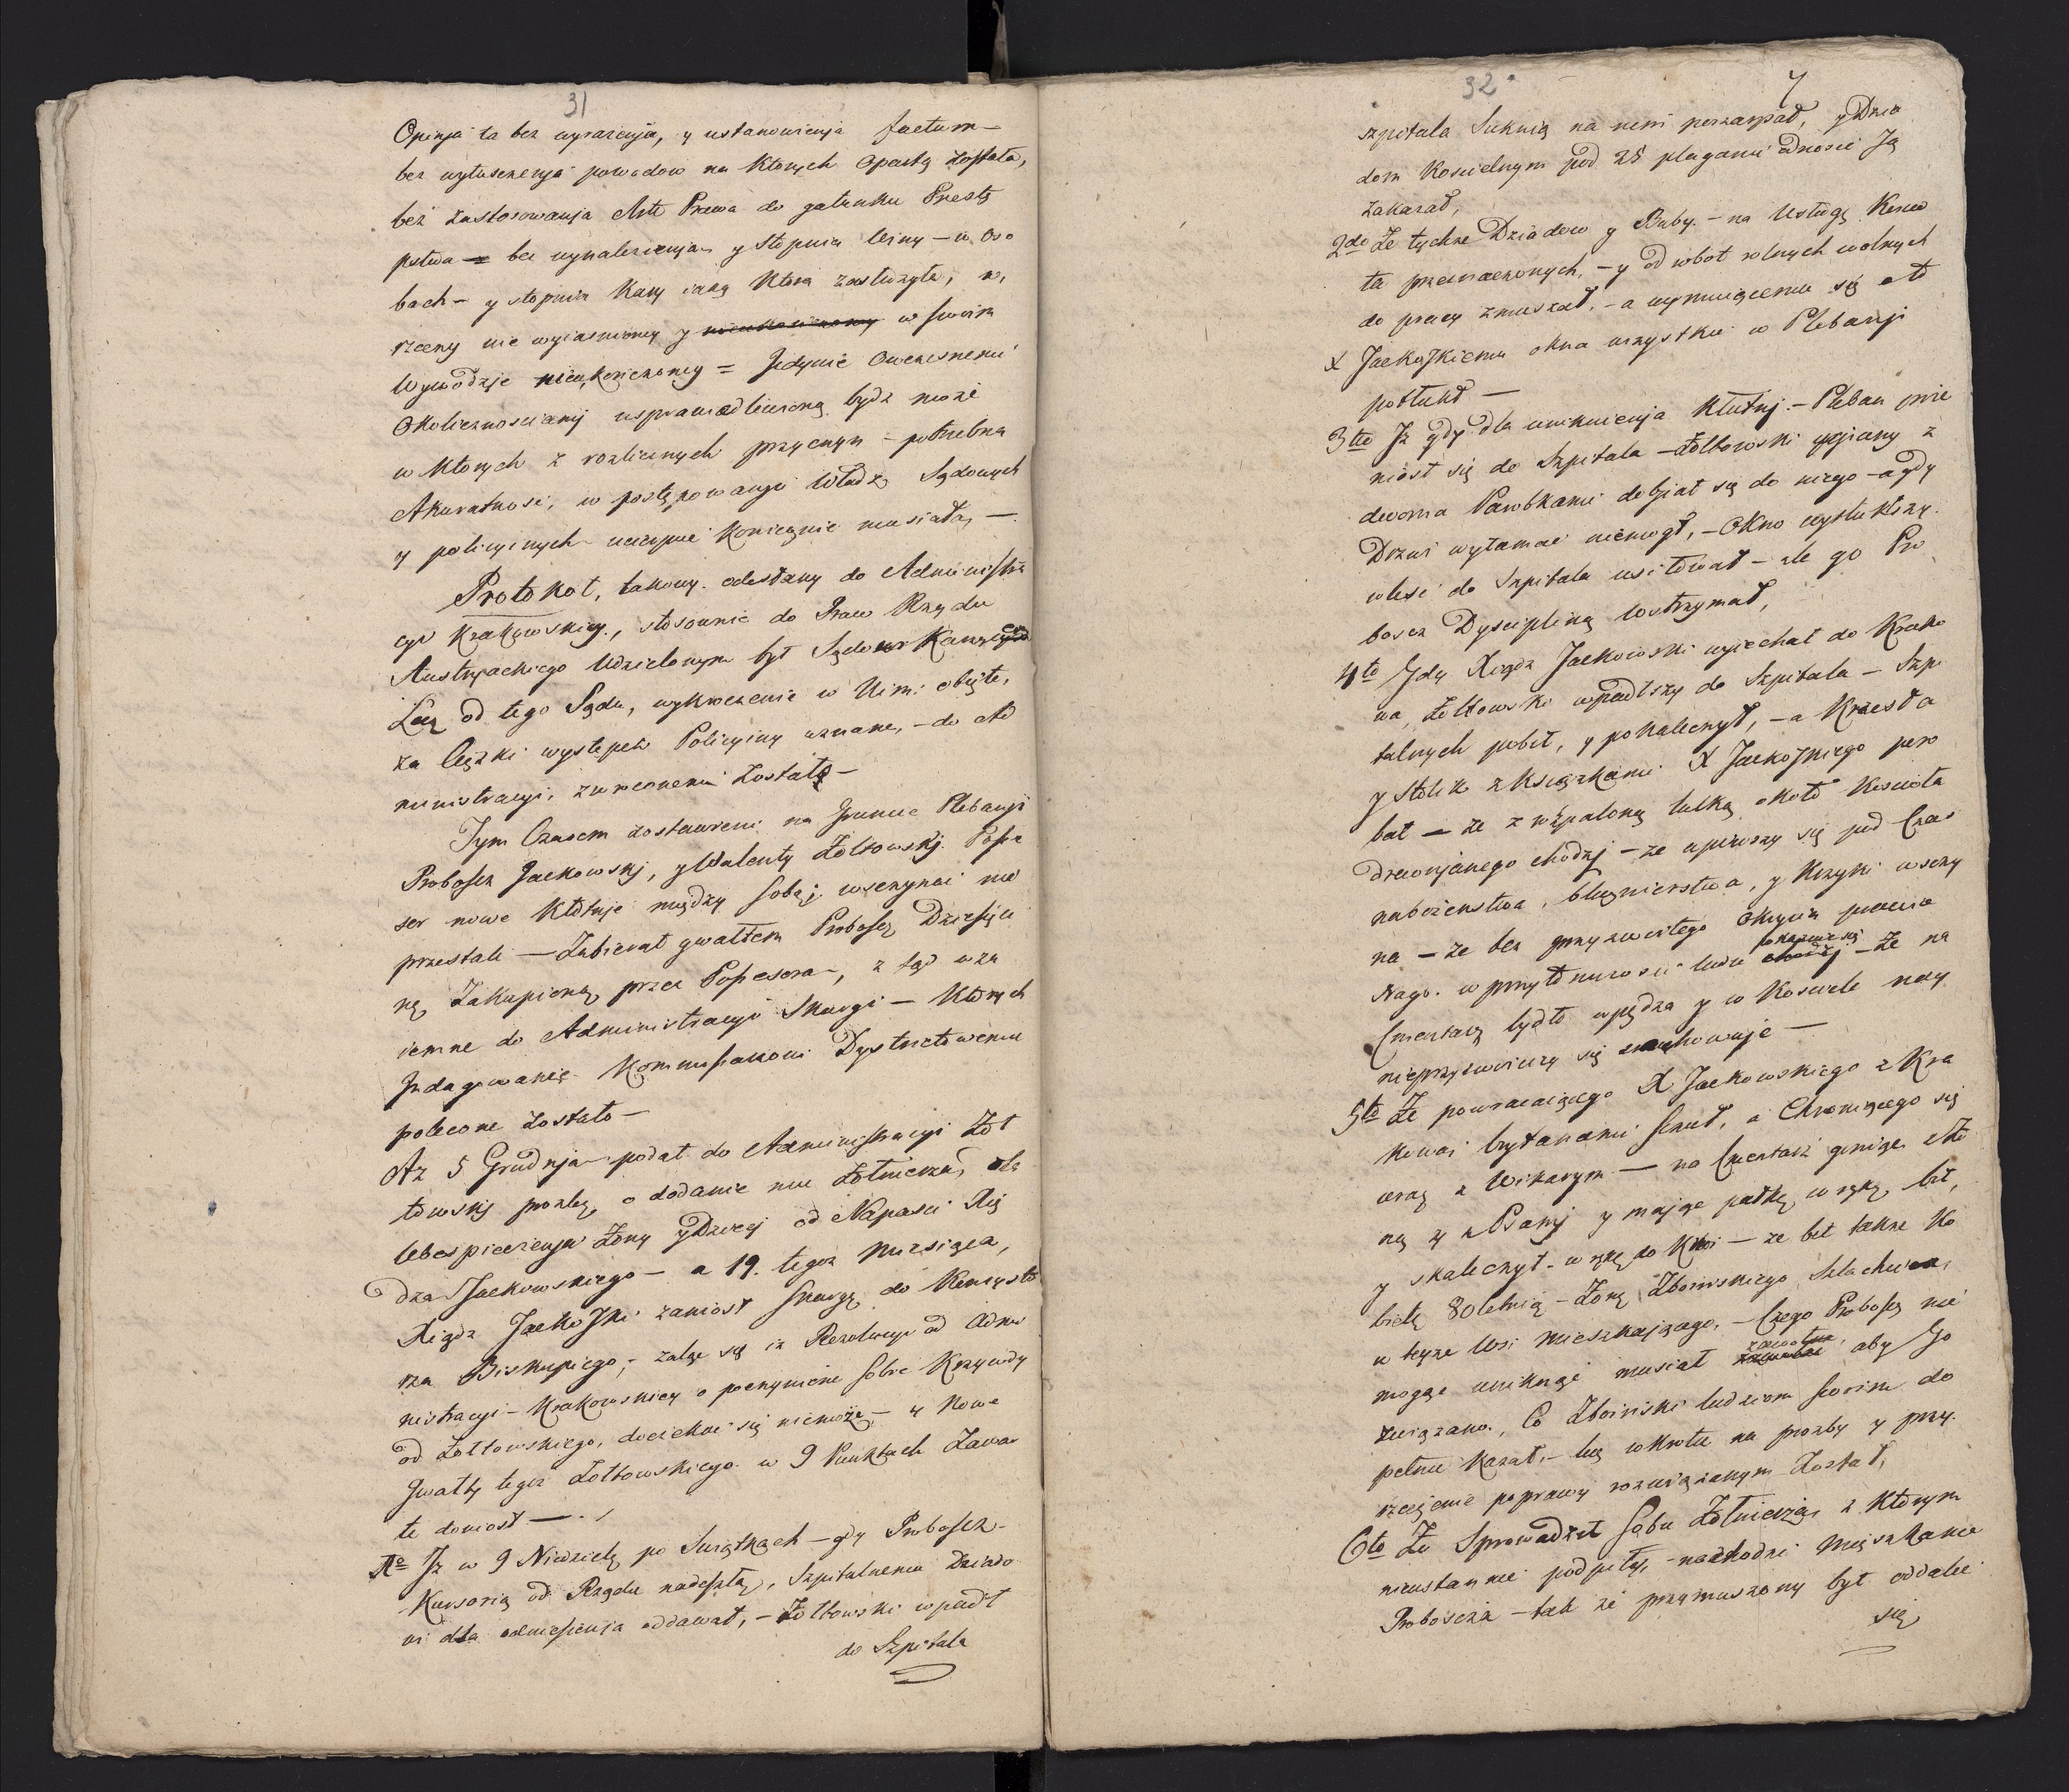 31
Opinja ta bez wyrażenja, y ustanowienja factum –
bez wytłuszczenja powodow na ktorych opartą została,
beż zastosowanja Artt Prawa do gatunku Przestę
pstwa – bez wynalezienja y Stopnia Winy – w Oso
bach – y stopnia Kary iaką Która zasłużyła, w,
rzeczy nie wyiasnioney y w swoim
Wywodzje nieukończoney = Jedynie Owczesnemi
Okolicznosciamj usprawiedliwioną bydz może
w Ktorych z rozlicznych przyczyn – potrzebna
Akuratnosc, w postępowanju Władz Sądowych
y policyinych ucierpieć koniecznie musiała, –
Protokoł, takowy odesłany do Administra
cyi Krakowskiey, stosownie do Praw Rządu
Austryackiego Udzielonym był Sądowi
Lecz od tego Sądu, wykroczenie w Nim obięte,
za Cięzki występek Policyiny uznane, – do Ad
ministracyi, zwroconemi Zostało –
Tym Czasem zostawieni na Gruncie Plebanji
Probosz Jackowskj, y Walenty Zoltowskj Posse
sor nowe Kłótnje między Sobą wszczynać nie
przestali – Zabierał gwałtem Probosz Dziesięci
nę Zakupioną przez Possesora –, z tąd wza
iemne do Administracyi Skargi – Ktorych
Indagowanie Kommissarzowi Dystrictowemu
polecone Zostało –
Az 5 Grudnja podał do Administracyi Zoł
towskj prozbę o dodanie mu Zołnierza, dla
Ubespieczenja Zony y Dzieci od Napasci Xię
dza Jackowskiego – a 19. tegoz Miesiąca,
Xiądz Jackoskj zaniosł Skargę do Konsysto
rza Biskupiego, – żaląc się iz Rezolucyi od Admi
nistracyi – Krakowskiey o poczynione sobie Krzywdy
od Zołtowskiego, doczekać się niemoże – y Nowe
Gwałty tegoz Zołtowskiego w 9 Punktach Zawar
te doniosł –
1o Iz w 9 Niedzielę po Swiątkach – gdy Probosz
Kursorią od Rządu nadeszłą, Szpitalnemu Dziado
wi dla odniesienja oddawał, – Zołtowski wpadł
do Szpitala
32
7
szpitala Suknią na nim poszarpał, y Dzia
dom Koscielnym pod 25 plagami odnosić Ją
zakazał,
2do Ze tychze Dziadow y Baby – na Usługę Koscio
ła przeznaczonych, – y od robot rolnych wolnych
do pracy zmuszał, – a wymuiącemu się o to
X Jackoskiemu okna wszystkie w Plebanji
potłukł –
3tio Iz gdy dla uniknienja Kłutnj – Pleban prze
niosł się do Szpitala – Zołtowski pijany z
dwoma Parobkami dobjał się do niego – a gdy
Drzwi wyłamać niemogł, – Okno wytłukłszy
wlesć do Szpitala usiłował – ale go Pro
bosz Dyscipliną wstrzymał,
4to Gdy Xiądz Jackowski wyiechał do Krako
wa, Zołtowski wpadłszy do Szpitala – Szpi
talnych pobił, y pokaleczył, – a Krzesła
y Stolik z Ksiązkami X Jackoskiego poro
bał – ze z zapaloną lulką około Kościoła
drewnjanego chodzj – ze upiwszy się pod Czas
nabożeństwa, bluznierstwa, y Krzyki wszczy
na – ze bez przyzwoitego Okrycia prawie
Nago w przytomnosci ludu pokazuie się – Ze na
Cmentarz bydło wpędza y w Kosciele nay
nieprzyzwoiciey się zachowuje –
5to Ze powracaiącego X Jackowskiego z Kra
kowa brytanami szczuł, a Chroniącego się
wraz z Wikarym – na Cmentarz goniąc
y mając pałkę w ręku, bił,
y skaleczył w rękę do Krwi – ze bił takze Ko
bietę 80letnią – Zonę Zboinskiego Szlachcica
w teyze Wsi Mieszkającego, – Czego Probosz nie
mogąc uniknąć musiał zawołać aby Go
związano, Co Zboinski ludziom swoim do
pełnić Kazał, – lecz wkrotce na prozby y przy
rzeczenie poprawy rozwiązanym Został,
6to Ze Sprowadził Sobie Zołnierza, z Ktorym
nieustannie podpiły, – nachodzi Mieszkanie
Proboscza – tak że przymuszony był oddalić
się